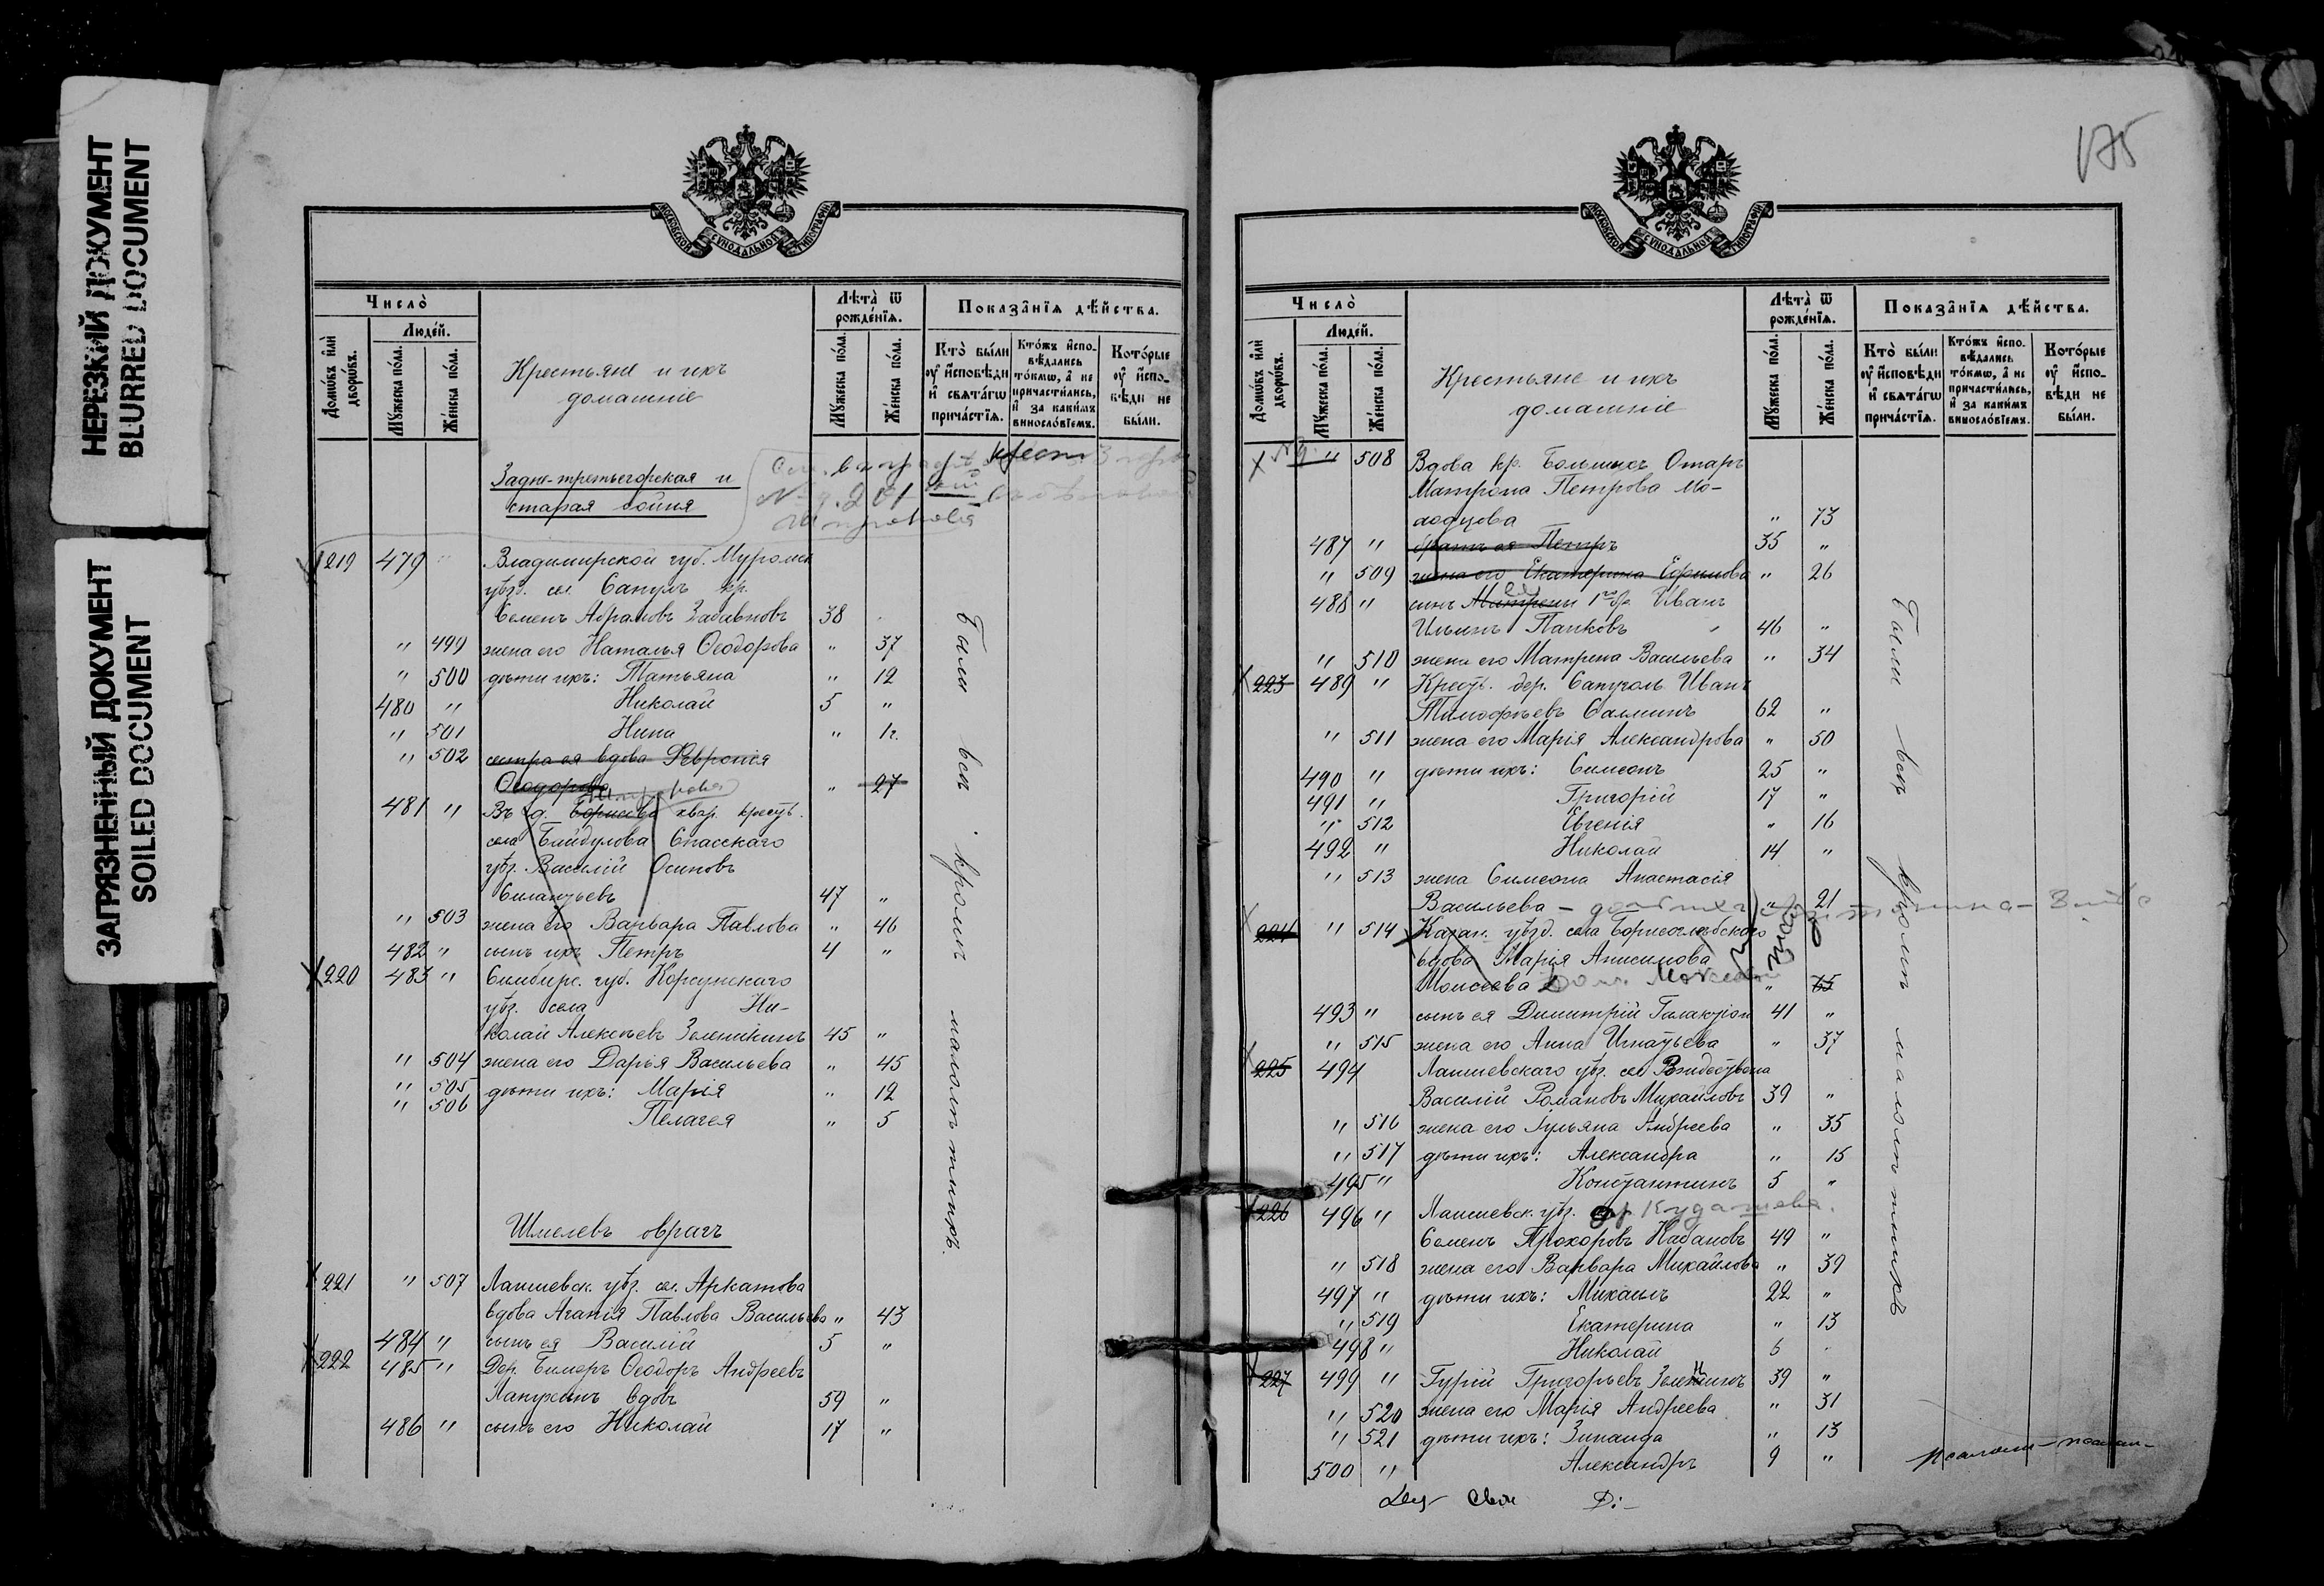 НЕРЕЗКИЙ ДОКУМЕНТ
BLURRED DOCUMENT
ЗАГРЯЗНЕННЫЙ ДОКУМЕНТ
SOILED DOCUMENT
МОСКОВСКОЙ СѴНОДАЛЬНОЙ ТИПОГРАФІИ
Число̀
Людей.
Домѡвъ и҆лѝ дворѡвъ.
Мꙋжеска по́ла.
Же́нска по́ла.
Крестьяне и ихъ
домашніе
Лѣта̀ ѿ
рожде́нїѧ.
Мꙋжеска по́ла.
Же́нска по́ла.
Показа̑нїѧ дѣ́йства.
Кто̀ бы́ли
ᲂу҆ и҆сповѣ́ди
и҆ свѧта́гѡ
прича́стїѧ.
Кто́жъ и҆спо-
вѣ́дались
то́кмѡ, а҆ не
причасти́лись,
и҆ за каки́мъ
виносло́вїемъ.
Кото́рые
ᲂу҆ и҆спо-
вѣ́ди не
бы́ли.
Задне-третьегорская и
старая бойня
219 479 Владимирской губ. Муромск
уѣзд. сел.
Семенъ Абрамовъ 38
" 499 жена его Наталья Ѳеодорова " 37
" 500 дѣти ихъ: Татьяна " 12
480 " Николай 5 "
" 501 Нина " 1г.
" 502 сестра ея вдова Ѳевронія
Ѳеодорова " 27
481 " Въ д. квар. крест.
села Байдулова Спасскаго
уѣз. Василій Осиповъ
Силантьевъ 47 "
" 503 жена его Варвара Павлова " 46
482 " сынъ ихъ Петръ 4 "
220 483 " Симбирс. губ. Корсунскаго
уѣз. села Ни-
колай Алексѣевъ Зеленикинъ 45 "
" 504 жена его Дарья Васильева " 45
" 505 дѣти ихъ: Марія " 12
" 506 Пелагея " 5
Были всѣ кромѣ малолѣтнихъ.
Шмелевъ оврагъ
221 " 507 Лаишевск. уѣз. сел. Аркатова
вдова Агапія Павлова Васильева " 43
484 " сынъ ея Василій 5 "
222 485 " Дер. Бимеръ Ѳеодоръ Андреевъ
Лапухинъ вдовъ 59 "
486 " сынъ его Николай 17 "
175
МОСКОВСКОЙ СѴНОДАЛЬНОЙ ТИПОГРАФІИ
Число̀
Людей.
Домѡвъ и҆лѝ дворѡвъ.
Мꙋжеска по́ла.
Же́нска по́ла.
Крестьяне и ихъ
домашніе
Лѣта̀ ѿ
рожде́нїѧ.
Мꙋжеска по́ла.
Же́нска по́ла.
Показа̑нїѧ дѣ́йства.
Кто̀ бы́ли
ᲂу҆ и҆сповѣ́ди
и҆ свѧта́гѡ
прича́стїѧ.
Кто́жъ и҆спо-
вѣ́дались
то́кмѡ, а҆ не
причасти́лись,
и҆ за каки́мъ
виносло́вїемъ.
Кото́рые
ᲂу҆ и҆спо-
вѣ́ди не
бы́ли.
" 508 Вдова кр. Большихъ Отаръ
Матрона Петрова Мо-
лодцова " 73
487 " братъ ея Петръ 35 "
" 509 жена его Екатерина Ефимова " 26
488 " сынъ Матрены 1го бр. Иванъ
Ильинъ Панковъ 46 "
" 510 жена его Матрена Васильева " 34
223 489 " Крест. дер. Сапуголь Иванъ
Тимофѣевъ Салминъ 62 "
" 511 жена его Марія Александрова " 50
490 " дѣти ихъ: Симеонъ 25 "
491 " Григорій 17 "
" 512 Евгенія " 16
492 " Николай 14 "
" 513 жена Симеона Анастасія
Васильева " 21
224 " 514 Казан. уѣзд. села Борисоглѣбскаго
вдова Марія Анисимова
Моисеева " 75
493 " сынъ ея Димитрій Галактіон 41 "
" 515 жена его Анна Игнатьева " 37
225 494 Лаишевскаго уѣз. сел. Рождествена
Василій Романовъ Михайловъ 39 "
" 516 жена его Іульяна Андреева " 35
" 517 дѣти ихъ: Александра " 15
495 " Константинъ 5 "
226 496 " Лаишевск. уѣз. Кудашева
Семенъ Прохоровъ Кабановъ 49 "
" 518 жена его Варвара Михайлова " 39
497 " дѣти ихъ: Михаилъ 22 "
" 519 Екатерина " 13
498 " Николай 6
227 499 " Гурій Григорьевъ 39 "
" 520 жена его Марія Андреева " 31
" 521 дѣти ихъ: Зинаида " 13
500 " Александръ 9 "
Были всѣ кромѣ малолѣтнихъ